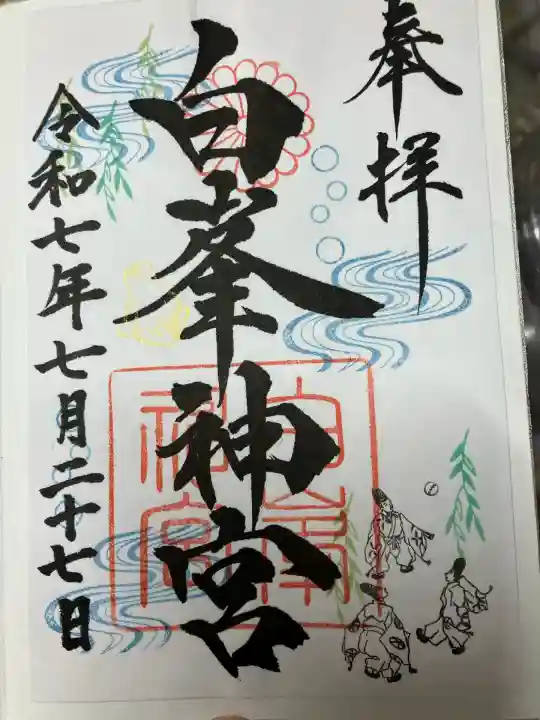 奉拝
白峯神宮
令和七年七月二十七日
白峯
神宮